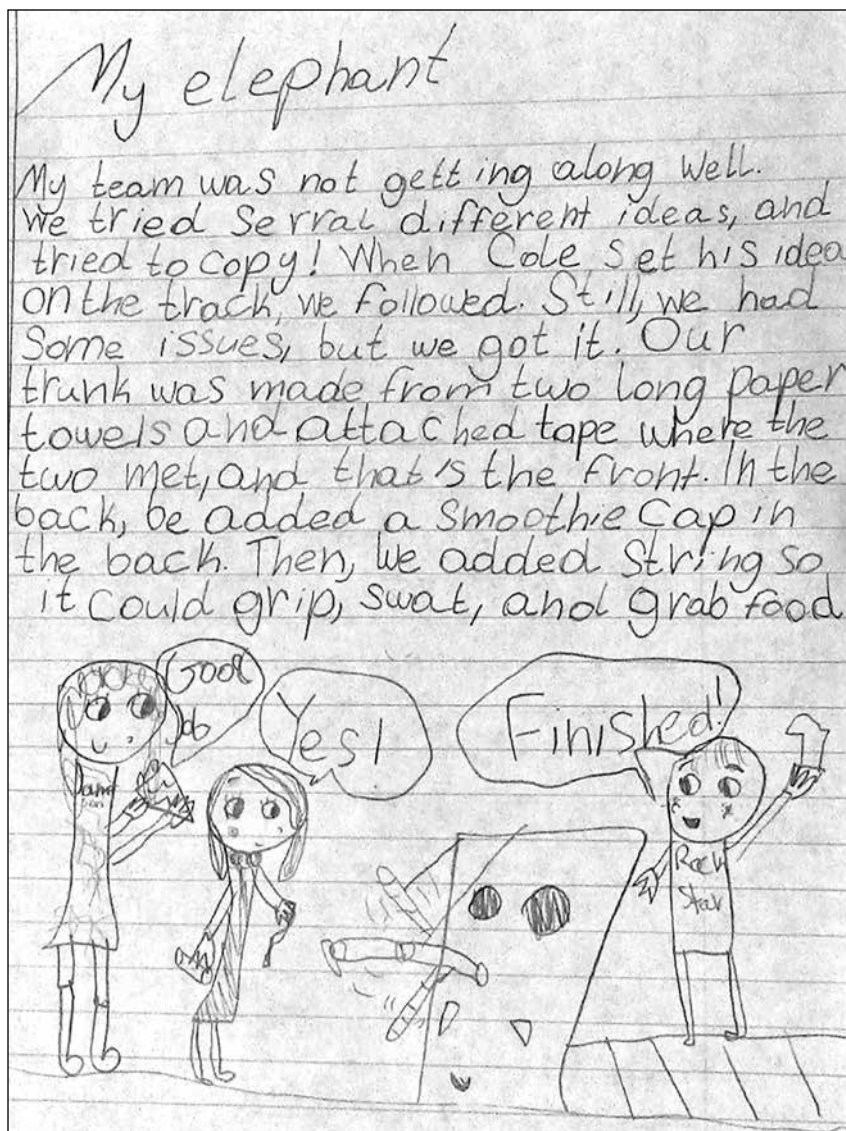 My elephant
My team was not getting along well.
We tried Serral different ideas, and
tried to copy! When Cole set his idea
on the track, we followed. Still, we had
Some issues, but we got it. Our
trunk was made from two long paper
towels and attached tape where the
two met, and that's the front. In the
back, be added a Smoothie Cap in
the back. Then, we added String so
it could grip, swat, and grab food
Good
Job
Yes!
Finished!
Rock
Star